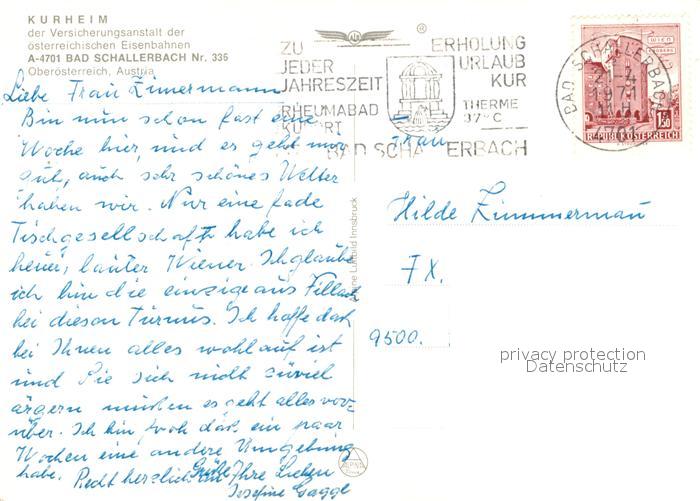 KURHEIM
der Versicherungsanstalt der
österreichischen Eisenbahnen
A-4701 BAD SCHALLERBACH Nr. 336
Oberösterreich, Austria
Liebe Frau Zimmermann
Bin nun schon fast eine
Woche hier, und es geht mir
gut, auch sehr schönes Wetter
haben wir. Nur eine fade
Tischgesellschaft habe ich
heuer, lauter Wiener. Ich glaube
ich bin die einzige aus Villach
bei diesen Turnus. Ich hoffe daß
bei Ihnen alles wohlauf ist
und Sie sich nicht zuviel
ärgern müssen es geht alles vor-
über. Ich bin froh daß ein paar
Wochen eine andere Umgebung
habe. Recht herzliche Grüße
Ihre
Josefine Gaggl
ZU
JEDER
JAHRESZEIT
RHEUMABAD
KURORT
ERHOLUNG
URLAUB
KUR
THERME
37°C
BAD SCHALLERBACH
®
BAD SCHALLERBACH
1971
4701
WIEN
1.50
REPUBLIK ÖSTERREICH
Frau
Hilde Zimmermann
9500.
Luftbild Innsbruck
privacy protection
Datenschutz